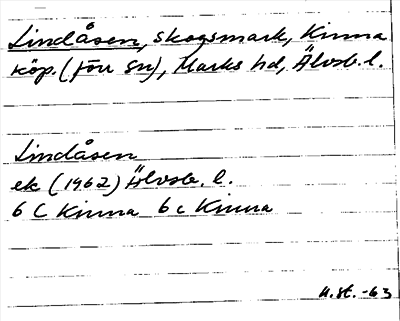 Lindåsen, skogsmark, Kinna
köp. (förr sn), Marks hd, Älvsb. l.
Lindåsen
ek (1962) Älvsb. l.
6 C Kinna 6 c Kinna
H.St. -63